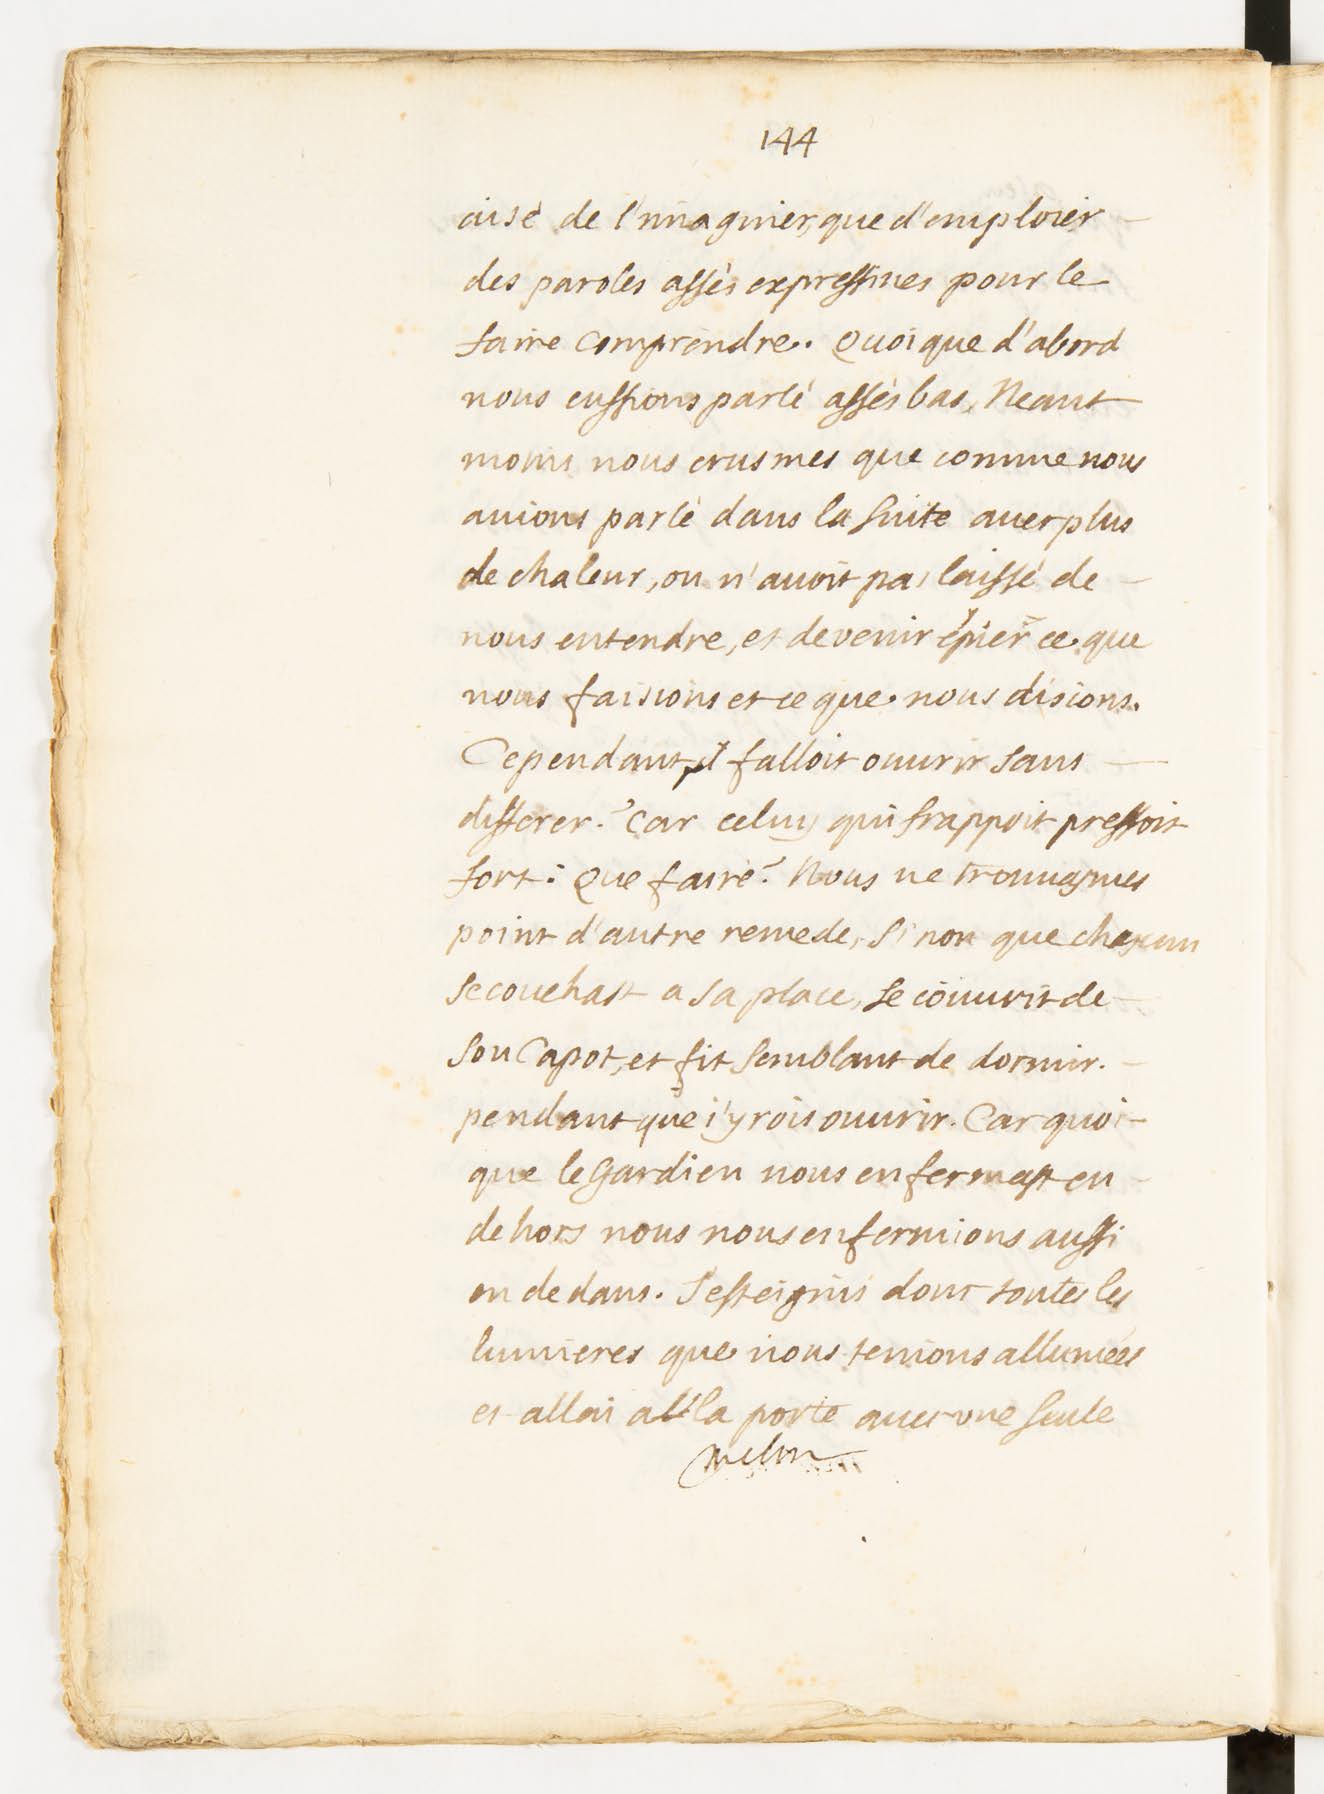 144
aisé de l'imaginer, que d'emploier
des paroles assés expressiues pour le
faire comprendre. Quoique d'abord
nous eussions parlé assés bas, Neant
moins nous crusmes que comme nous
auions parlé dans la suite auec plus
de chaleur, on n'auoit pas laissé de
nous entendre, et de venir épier ce que
nous faisions et ce que nous disions.
Cependant il falloit ouurir sans
differer. Car celuy qui frappoit pressoit
fort: Que faire? Nous ne trouuasmes
point d'autre remede, Si non que chascun
se couchast a sa place, se couurit de
son Capot, et fit semblant de dormir.
pendant que i'yrois ouurir. Car quoi-
que le Gardien nous enfermast en
dehors nous nous enfermions aussi
en dedans. J'esteignis donc toutes les
lumieres que nous tenions allumées
et allai a la porte auec vne seule